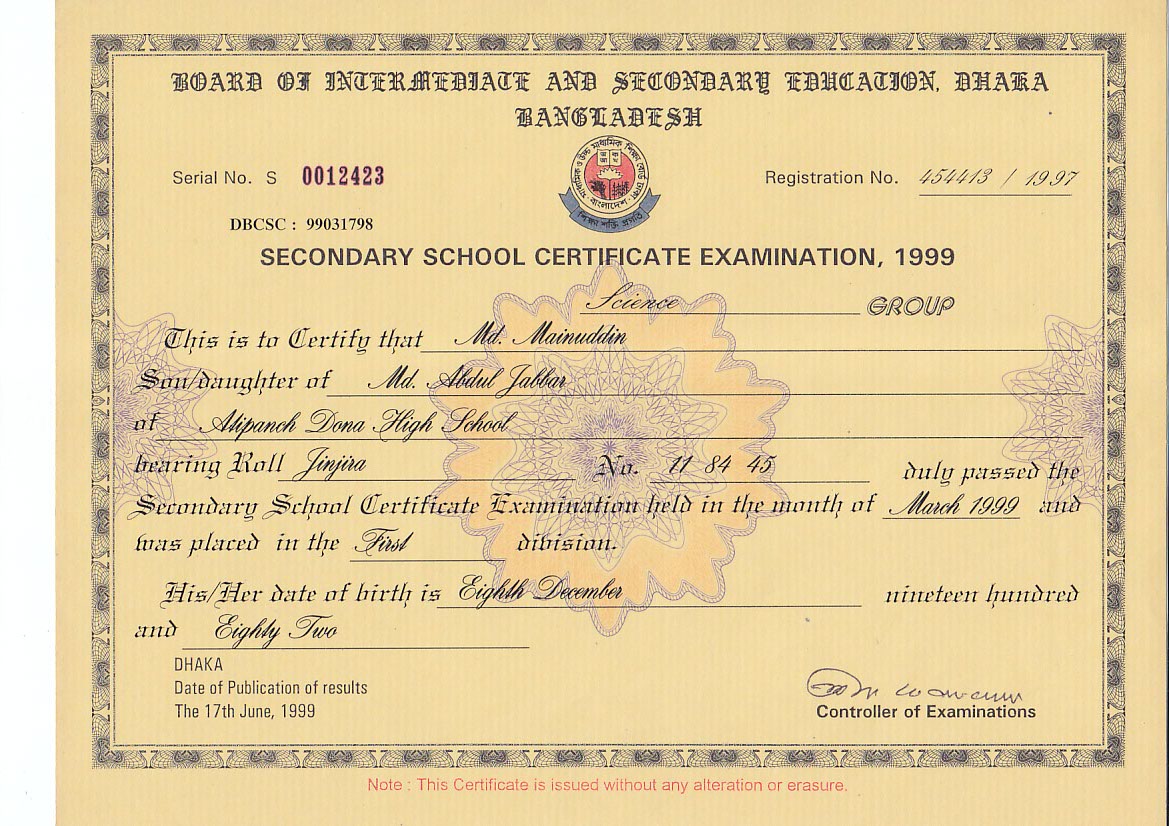 BOARD OF INTERMEDIATE AND SECONDARY EDUCATION, DHAKA
BANGLADESH
Serial No. S 0012423
Registration No. 454413 / 1997
DBCSC : 99031798
SECONDARY SCHOOL CERTIFICATE EXAMINATION, 1999
Science GROUP
This is to Certify that Md. Mainuddin
Son/daughter of Md. Abdul Jabbar
of Atipanch Dona High School
bearing Roll Jinjira No. 11 84 45 duly passed the
Secondary School Certificate Examination held in the month of March 1999 and
was placed in the First division.
His/Her date of birth is Eighth December nineteen hundred
and Eighty Two
DHAKA
Date of Publication of results
The 17th June, 1999
Controller of Examinations
Note : This Certificate is issued without any alteration or erasure.